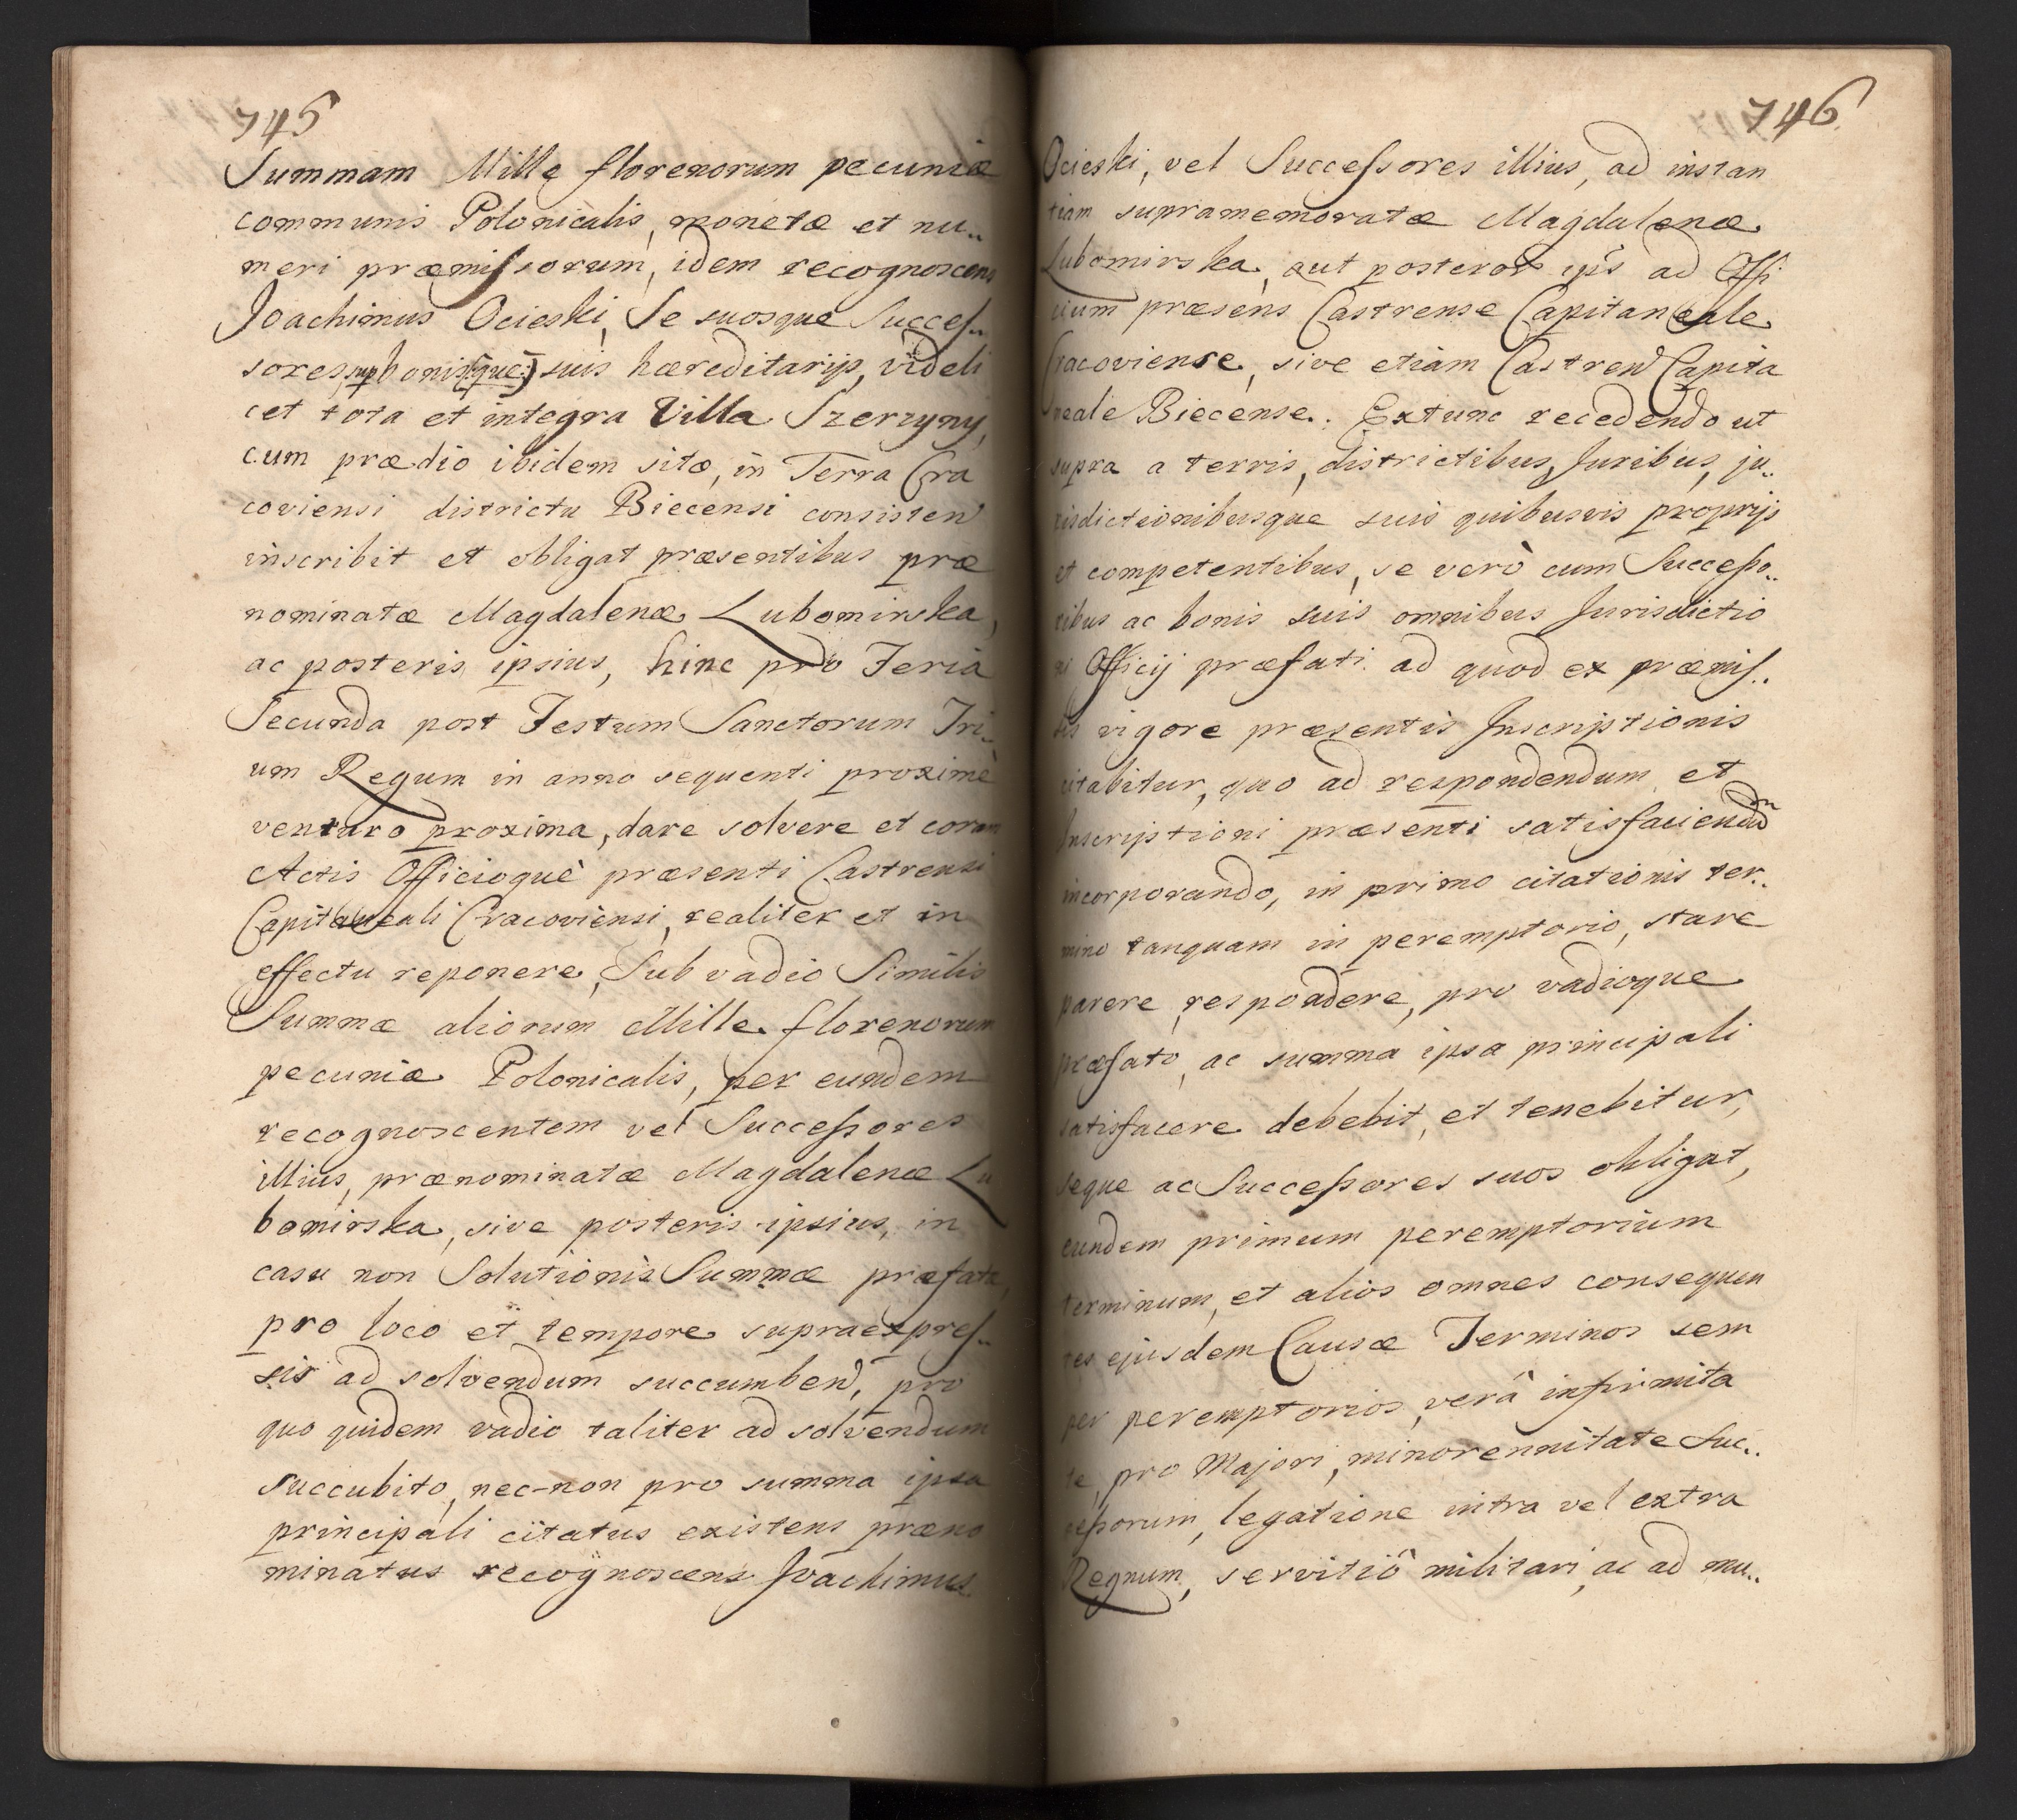 745
Summam Mille florenorum pecuniæ
communis Polonicalis, monetæ et nu„
meri præmissorum, idem recognoscens
Joachimus Ocieski, Se suosque Succes„
sores, sup bonis(que:) suis hæreditarijs, videli
cet tota et integra Villa Szerzyny,
cum prædio ibidem sitæ, in Terra Cra
coviensi districtu Biecensi consisten
inscribit et obligat præsentibus præ
nominatæ Magdalenæ Lubomirska,
ac posteris ipsius, hinc pro Feria
Secunda post Festum Sanctorum Tri„
um Regum in anno sequenti proximè
venturo proxima, dare solvere et coram
Actis Officioquè præsenti Castrensi
Capitaneali Cracoviensi, realiter et in
effectu reponere, Sub vadio Similis
Summæ aliorum Mille florenorum
pecuniæ Polonicalis, per eundem
recognoscentem vel Successores
illius, prænominatæ Magdalenæ Lu
bomirska, sive posteris ipsius, in
casu non Solutionis Summæ præfatæ,
pro loco et tempore supraexpres„
sis ad solvendum succumben, pro
quo quidem vadio taliter ad solvendum
succubito, nec-non pro summa ipsa
principali citatus existens præno
minatus recognoscens Joachimus
746
Ocieski, vel Successores illius, ad instan
tiam supramemoratæ Magdalenæ
Lubomirska, aut posteror ips ad Offi
cium præsens Castrense Capitaneale
Cracoviense, sive etiam Castren Capita
neale Biecense. Extunc recedendo ut
supra a terris, districtibus, Juribus, ju„
risdictionibusque suis quibusvis proprijs
et competentibus, se verò cum Successo„
ribus ac bonis suis omnibus Jurisdictio
ni Officij præfati ad quod ex præmis„
sis vigore præsentis Inscriptionis
citabitur, quo ad respondendum et
Inscriptioni præsenti satisfaciendum
incorporando, in primo citationis ter„
mino tanquam in peremptorio, stare
parere respondere, pro vadioque
præfato, ac summa ipsa principali
satisfacere debebit, et tenebitur,
seque ac Successores suos obligat,
eundem primum peremptorium
terminum, et alios omnes consequen
tes ejusdem Causæ Terminos sem
per peremptorios, verâ infirmita
te, pro Majori, minorennitate Suc„
cessorum, legatione intra vel extra
Regnum, servitiô militari, ac ad mu„